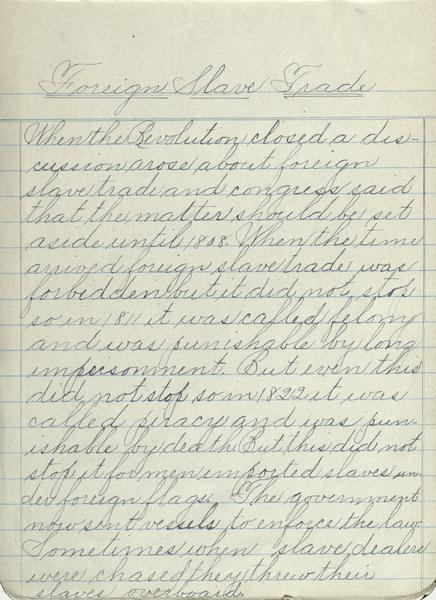 Foreign Slave Trade
When the Revolution closed a dis-
cussion arose about foreign
slave trade and congress said
that the matter should be set
aside until 1808. When the time
arrived foreign slave trade was
forbidden but it did not stop
so in 1811 it was called felony
and was punishable by long
imprisonment. But even this
did not stop so in 1822 it was
called piracy and was pun-
ishable by death. But this did not
stop it for men imported slaves un-
der foreign flags. The government
now sent vessels to enforce the law.
Sometimes when slave dealers
were chased they threw their
slaves overboard.